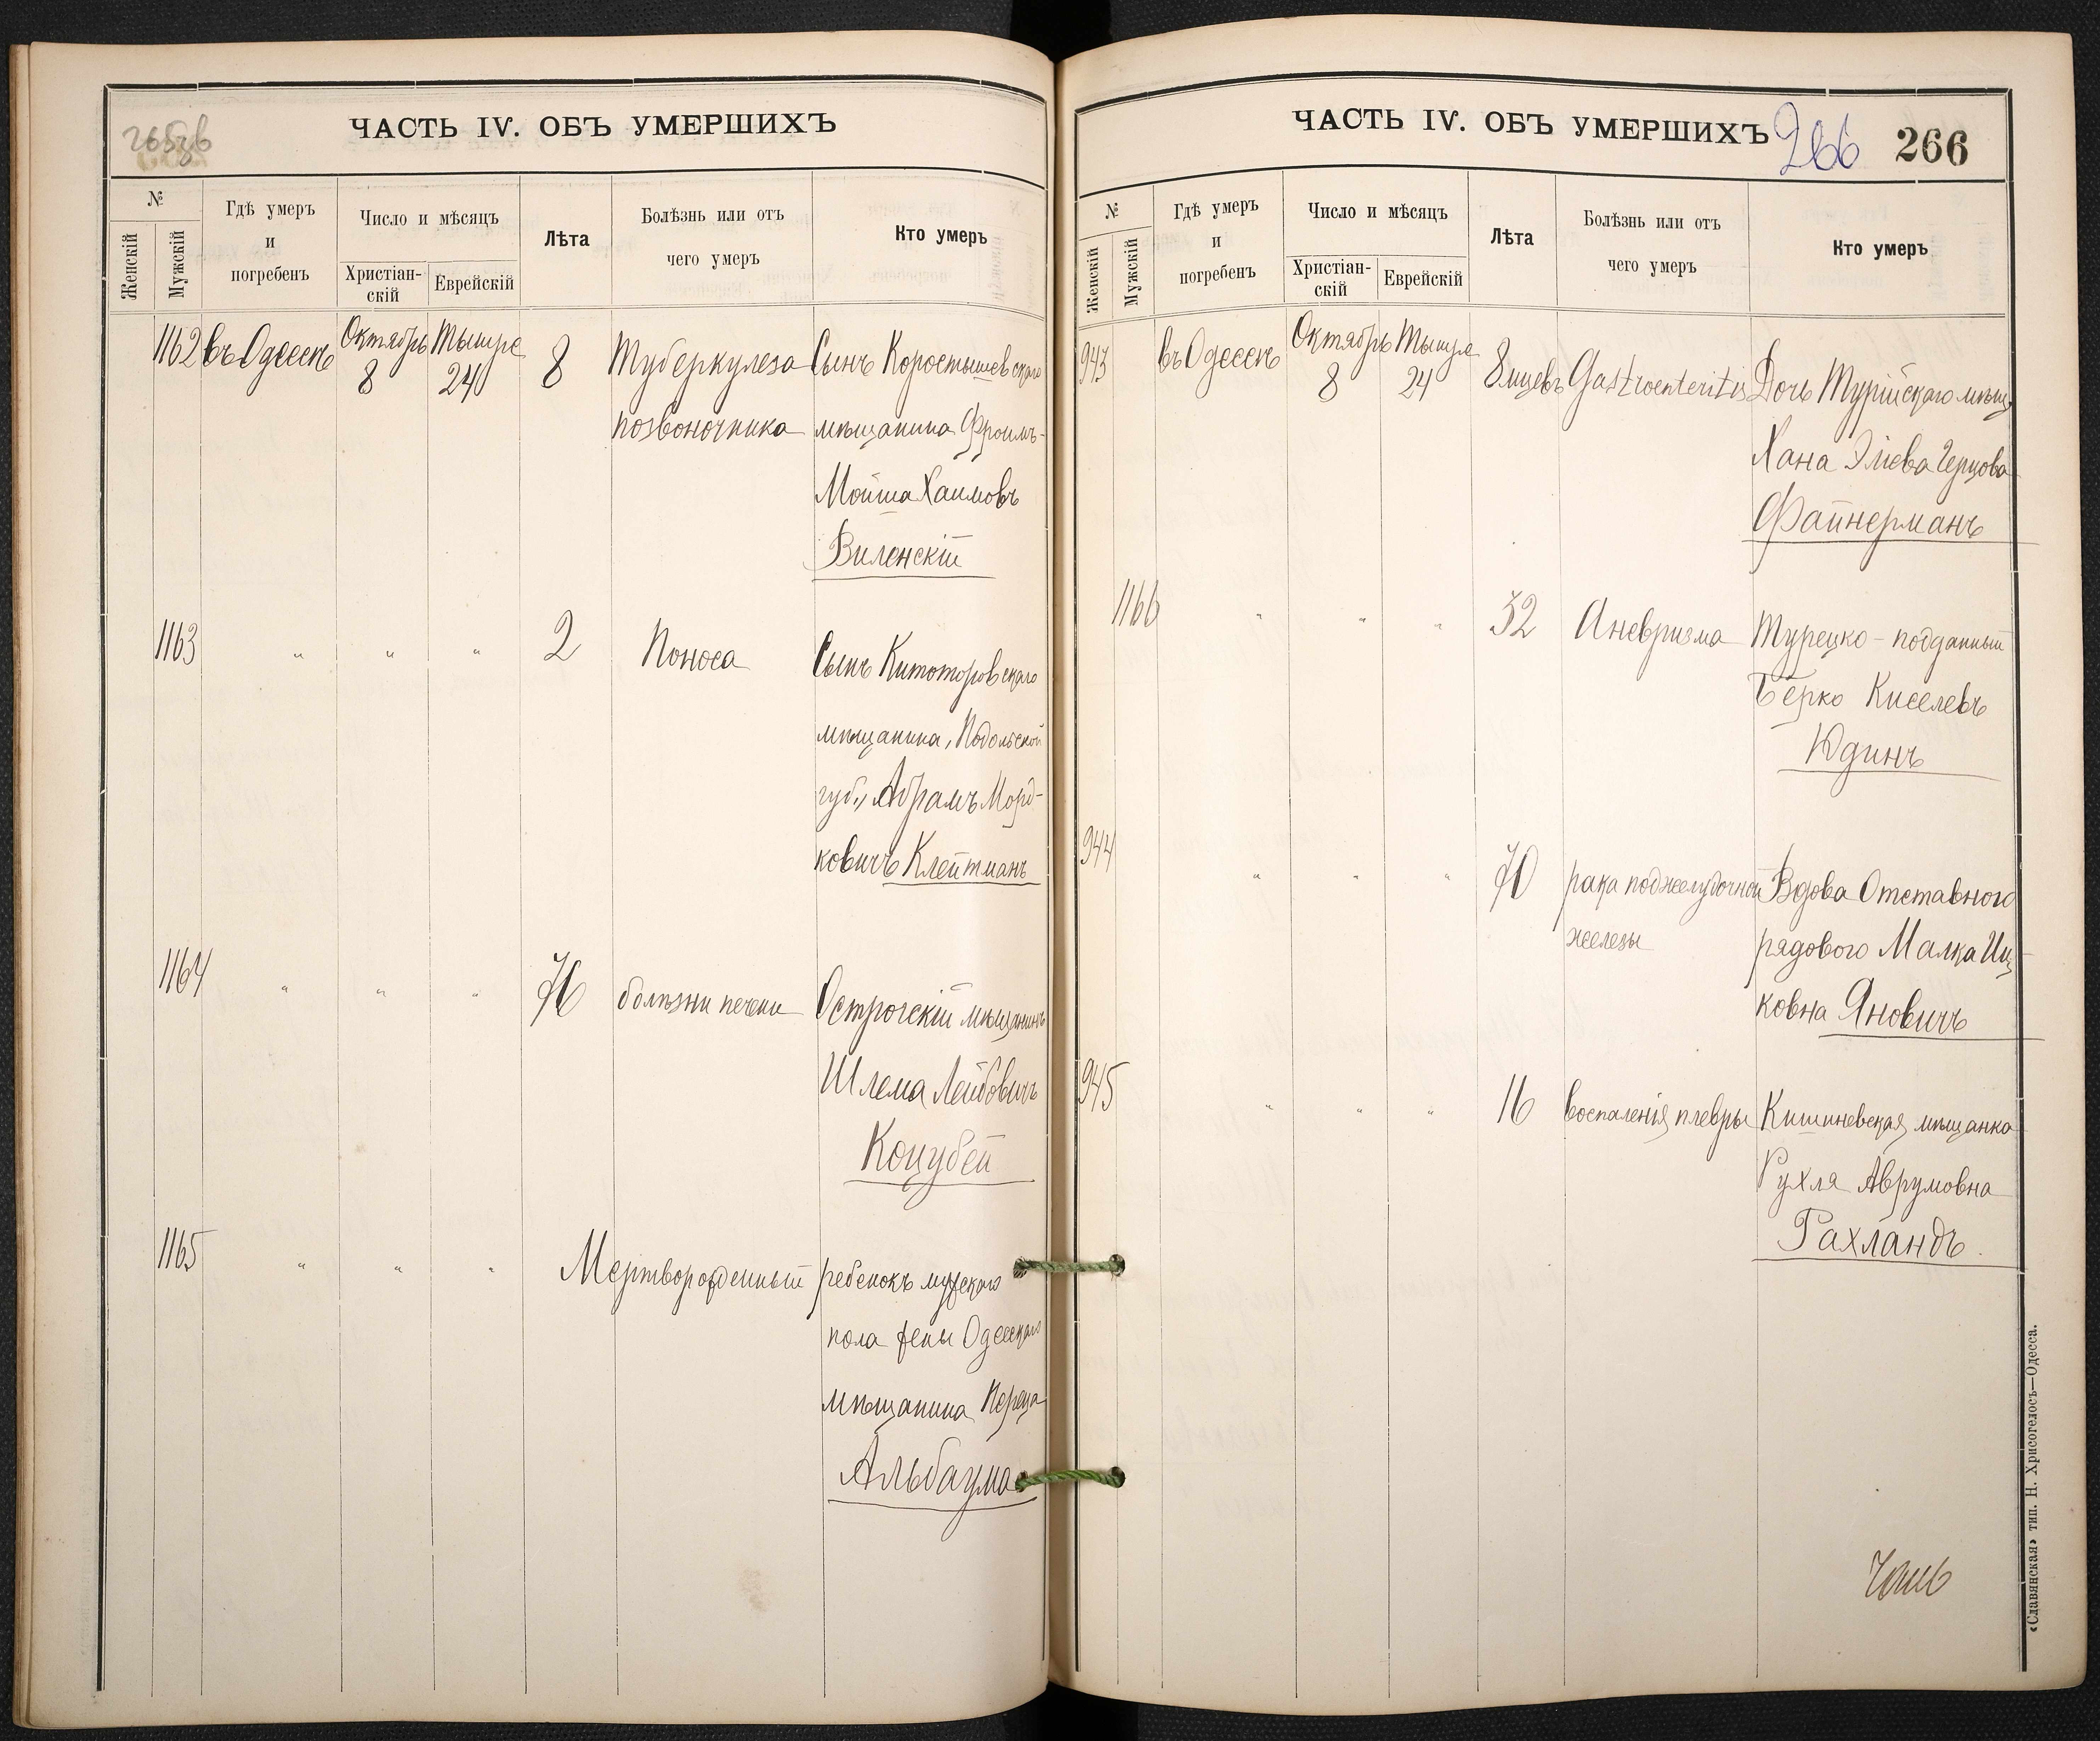 265зв
ЧАСТЬ IV. ОБЪ УМЕРШИХЪ
№
Женскій
Мужскій
Гдѣ умеръ
и
погребенъ
Число и мѣсяцъ
Христіан-
скій
Еврейскій
Лѣта
Болѣзнь или отъ
чего умеръ
Кто умеръ
1162 въ Одессѣ Октябрь 8 Тышре 24 8 Туберкулеза Сынъ Коростышевскаго
позвоночника мѣщанина Фроимъ-
Мойша Хаимовъ
Виленскій
1163 " " " 2 Поноса Сынъ Китоторовскаго
мѣщанина, Подольской
губ., Абрамъ Морд-
ковичъ Клейтманъ
1164 " " " 76 болѣзни печени Острогскій мѣщанинъ
Шлема Лейбовичъ
Коцубей
1165 " " " Мертворожденный ребенокъ мужскаго
пола жены Одесскаго
мѣщанина Переца
Альбаума
ЧАСТЬ IV. ОБЪ УМЕРШИХЪ
266 266
№
Женскій
Мужскій
Гдѣ умеръ
и
погребенъ
Число и мѣсяцъ
Христіан-
скій
Еврейскій
Лѣта
Болѣзнь или отъ
чего умеръ
Кто умеръ
943 въ Одессѣ Октябрь 8 Тышре 24 8 мцевъ Gastroenteritis Дочь Турійскаго мѣщ.
Хана Эліева Герцова
Файнерманъ
1166 " " " 32 Аневризма Турецко-подданный
Берко Киселевъ
Юдинъ
944 " " " 70 рака поджелудочной Вдова Отставного
железы рядового Малка Иц-
ковна Яновичъ
945 " " " 16 воспаленія плевры Кишиневская мѣщанка
Рухля Аврумовна
Рахландъ.
«Славянская» тип. Н. Хрисогелосъ—Одесса.